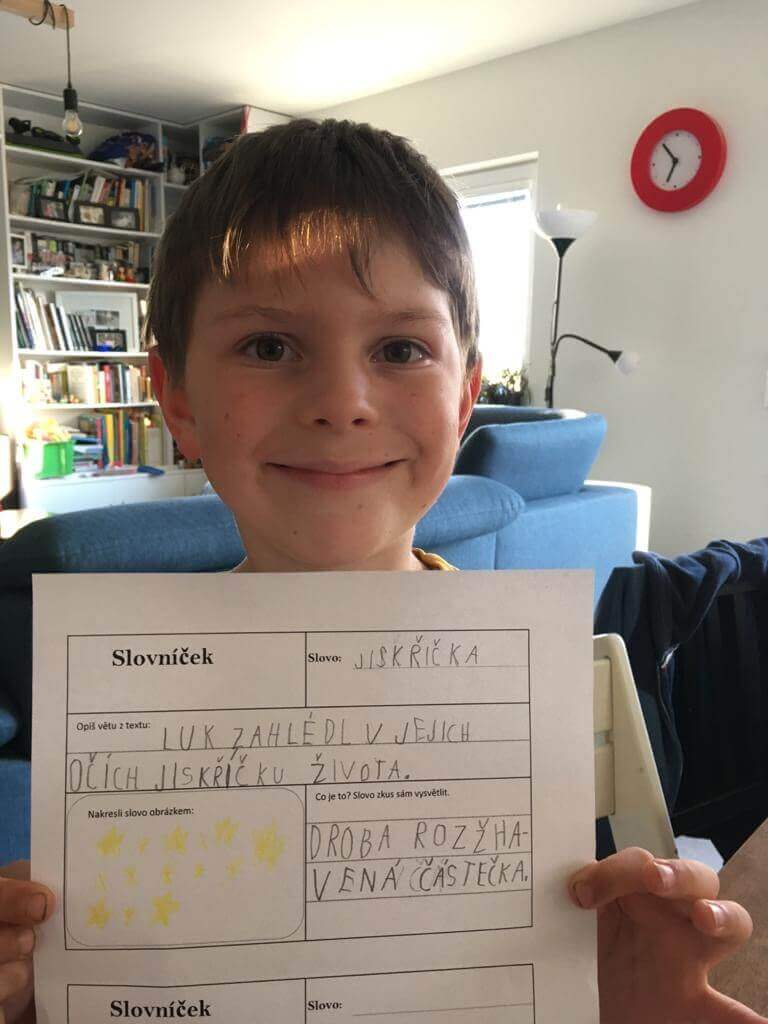 Slovníček
Slovo: JISKŘIČKA
Opiš větu z textu: LUK ZAHLÉDL V JEJICH
OČÍCH JISKŘÍČKU ŽIVOTA.
Nakresli slovo obrázkem:
Co je to? Slovo zkus sám vysvětlit.
DROBA ROZŽHA-
VENÁ ČÁSTEČKA.
Slovníček
Slovo: